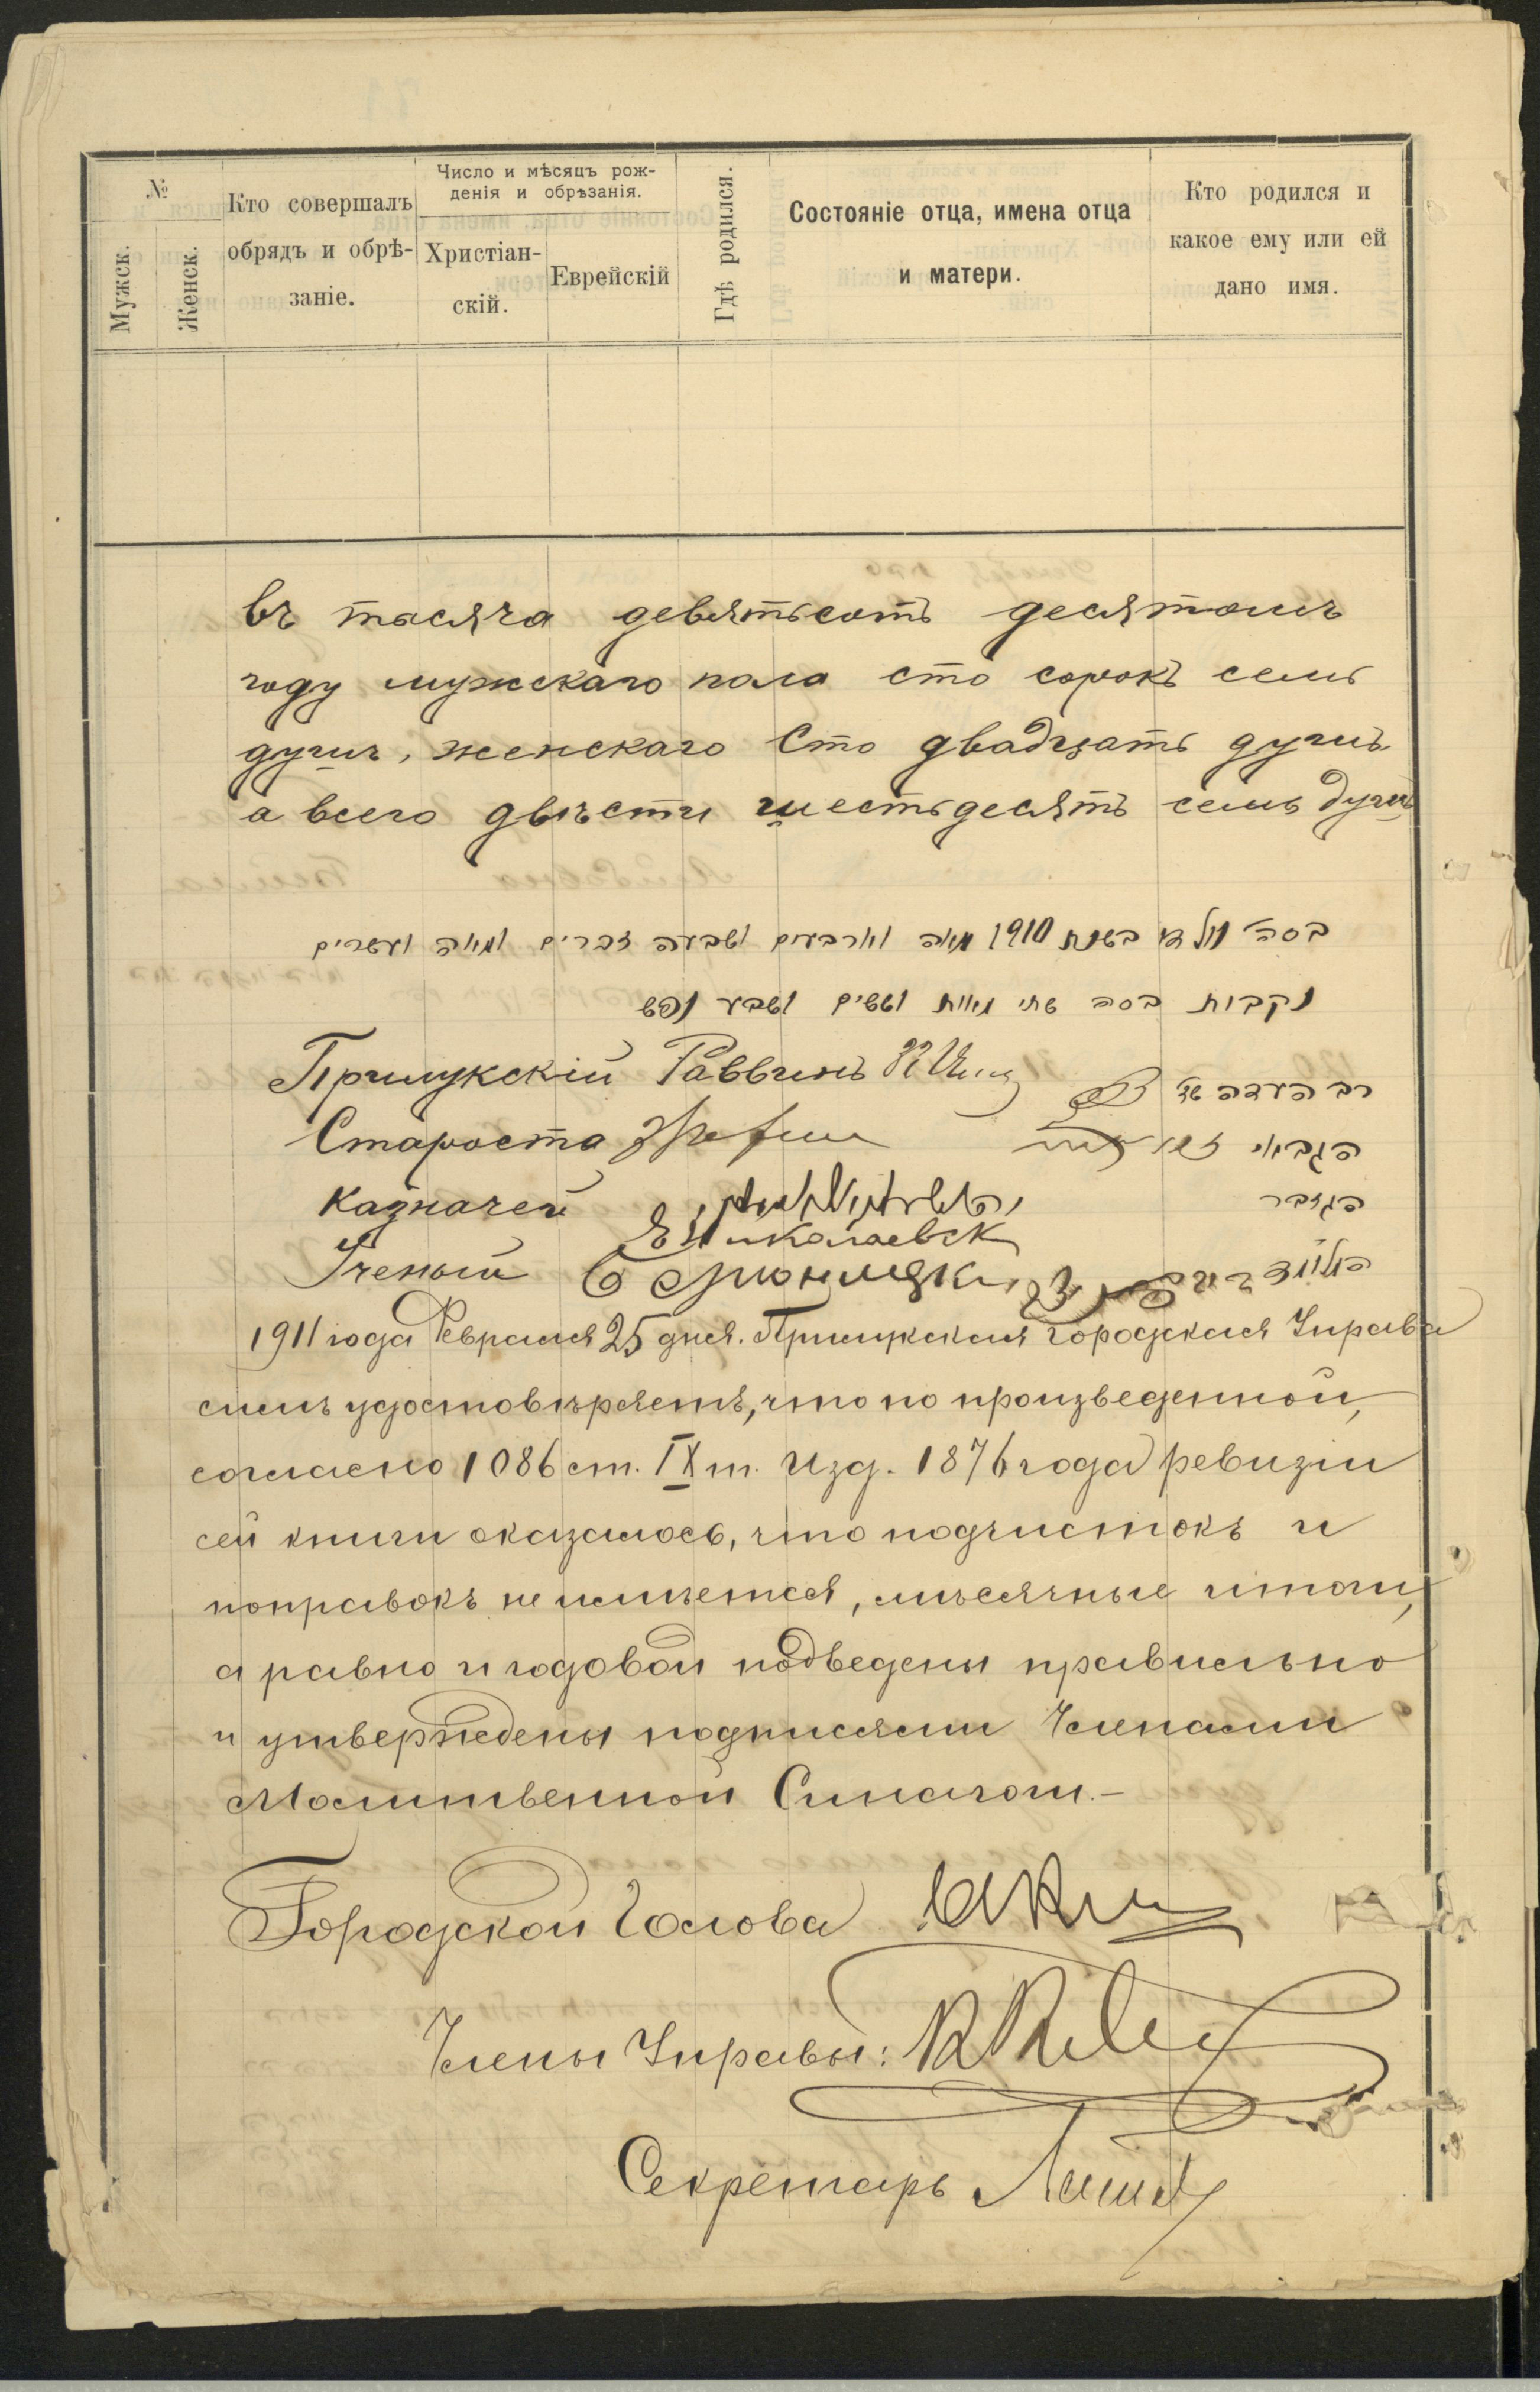 №
Мужск.
Женск.
Кто совершалъ
обрядъ и обрѣ-
заніе.
Число и мѣсяцъ рож-
денія и обрѣзанія.
Христіан-
скій.
Еврейскій
Гдѣ родился.
Состояніе отца, имена отца
и матери.
Кто родился и
какое ему или ей
дано имя.
въ тысяча девятьсотъ десятомъ
году мужскаго пола сто сорокъ семь
душъ, женскаго Сто двадцать душъ
а всего двѣсти шестьдесятъ семь душъ
בשנת 1910 מאה וארבעים ושבעה זכרים ומאה ועשרים
נקבות בסה שתי מאות וששים ושבע נפש
Прилукскій Раввинъ רב העדה
Староста הגבאי
Казначей הגזבר
Е Николаевск
Ученый
1911 года Февраля 25 дня. Прилукская Городская Управа
симъ удостовѣряетъ, что по произведенной,
согласно 1086 ст. IX т. Изд. 1876 года ревизіи
сей книги оказалось, что подчистокъ и
поправокъ не имѣется, мѣсячные итоги,
а равно и годовой подведены правильно
и утверждены подписями Членами
Молитвенной Синагоги.-
Городской Голова
Члены Управы:
Секретарь